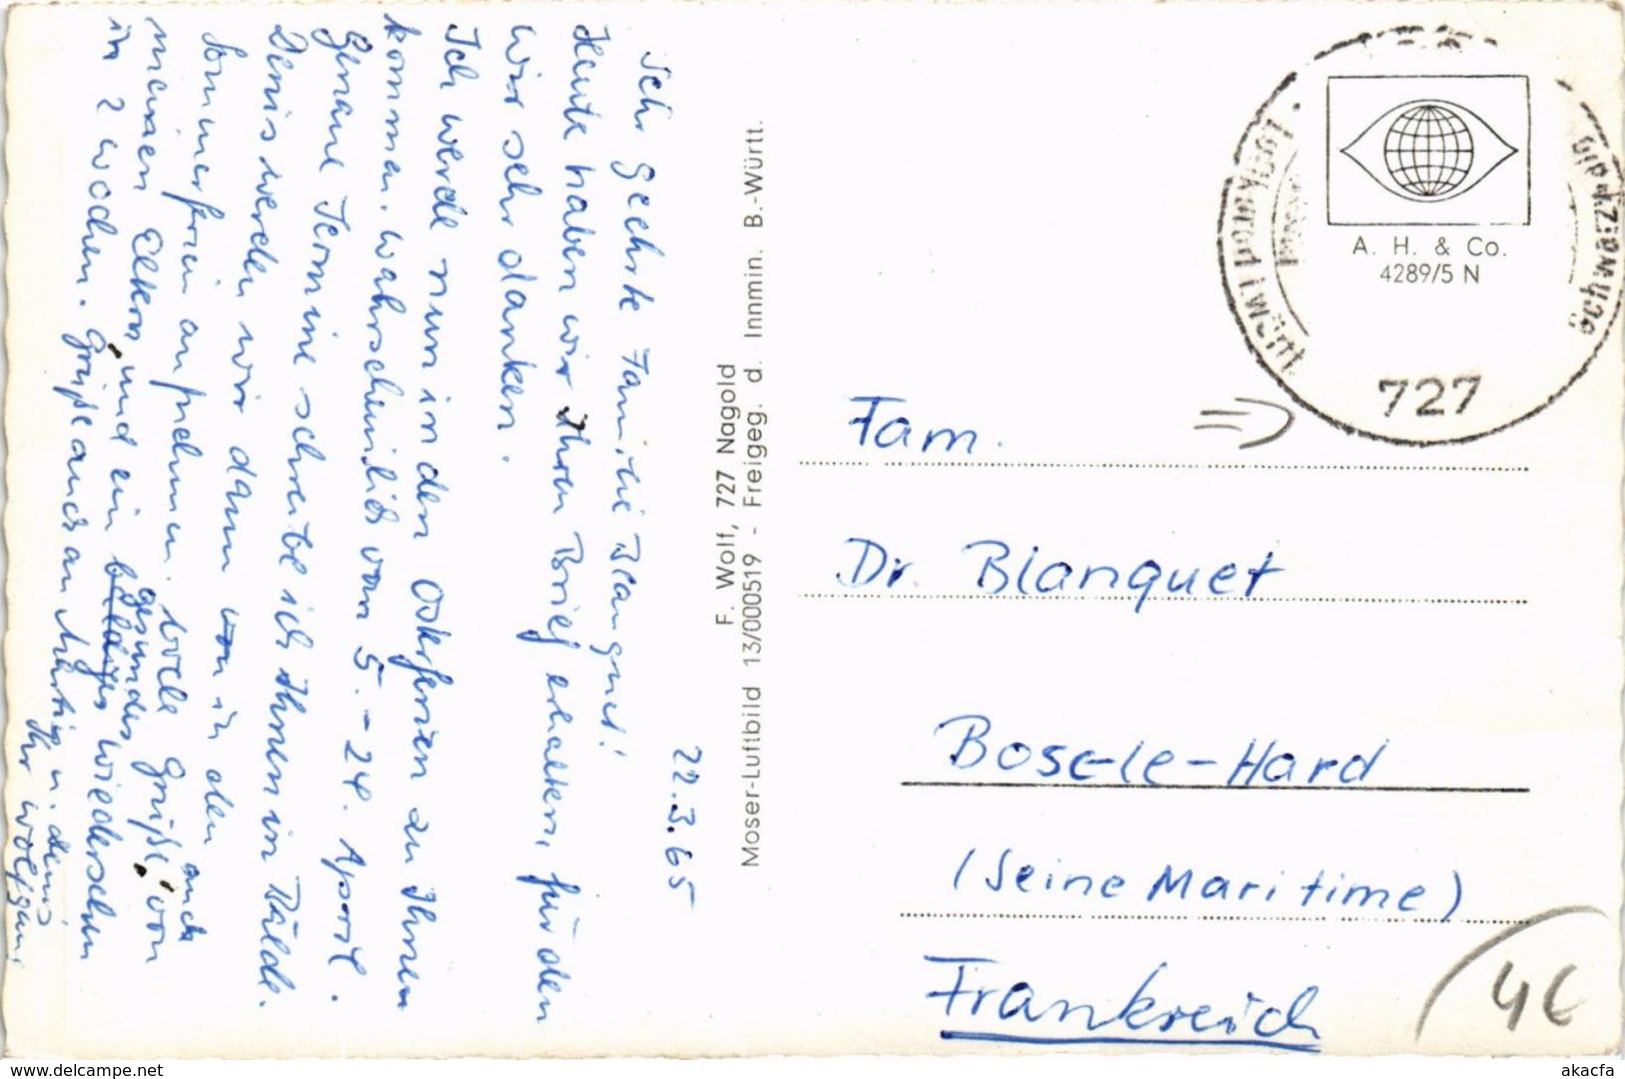 22.3.65
Sehr geehrte Familie Blanquet!
Heute haben wir Ihren Brief erhalten, für den
wir sehr danken.
Ich werde nun in den Osterferien zu Ihnen
kommen. Wahrscheinlich vom 5. - 24. April.
Genaue Termine schreibe ich Ihnen in Bälde.
Denis werden wir dann in den
Sommerferien aufnehmen. Viele Grüße, auch von
meinen Eltern und ein gesundes Wiedersehen
in 2 Wochen. Grüße auch an u. Denis
Ihr Wolfgang
F. Wolf, 727 Nagold
Moser-Luftbild 13/000519 - Freigeg. d. Innmin. B.-Württ.
A. H. & Co.
4289/5 N
727
Fam.
Dr. Blanquet
Bosc-le-Hard
(Seine Maritime)
Frankreich
4€
www.delcampe.net
akacfa